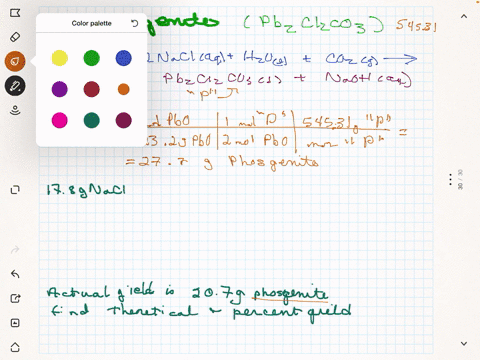 Color palette
genites (Pb2Cl2CO3) 545.31
2NaCl(aq) + H2O(l) + CO2(g) →
Pb2Cl2CO3(s) + NaOH(aq)
"P"
PbO | 1 mol "P" | 545.31 g "P" =
3.2g PbO | 2 mol PbO | mol "P"
= 27.7 g Phosgenite
17.8g NaCl
30 / 30
Actual yield is 20.7g phosgenite
find Theretical & percent yield